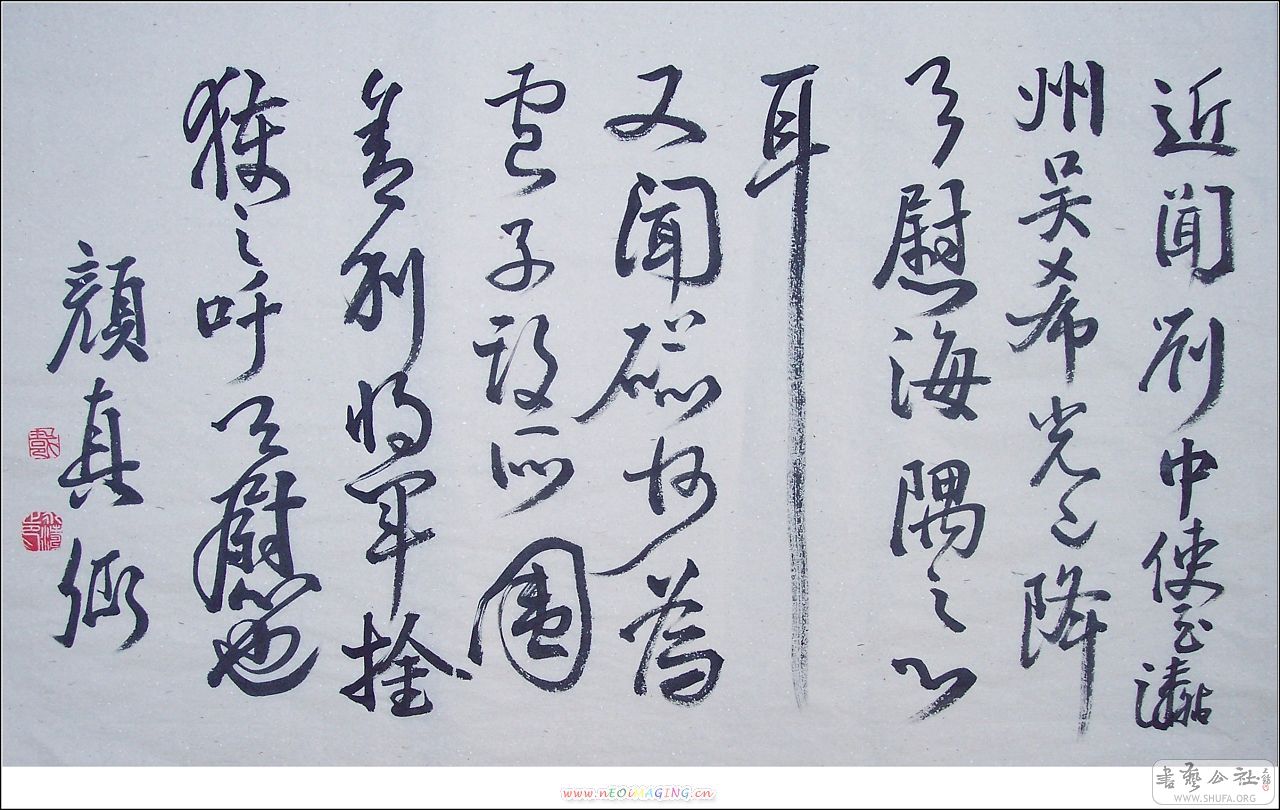 近聞劉中使至瀛
州吳希光已降
足慰海隅之心
耳
又聞磁州為
盧子期所圍
舍利將軍擒
獲之吁足慰也
顏真卿
www.nEOiMAGiNG.cn
書藝公社
WWW.SHUFA.ORG